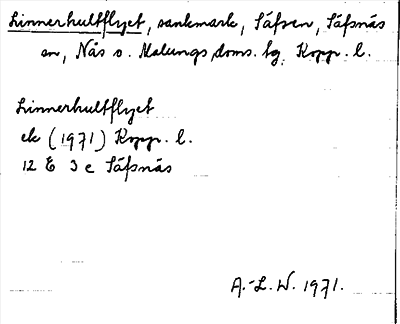 Linnerhultflyet, sankmark, Säfsen, Säfsnäs
sn, Nås o. Malungs doms. tg, Kopp. l.
Linnerhultflyet
ek (1971) Kopp. l.
12 E 3 c Säfsnäs
A.-L. W. 1971.